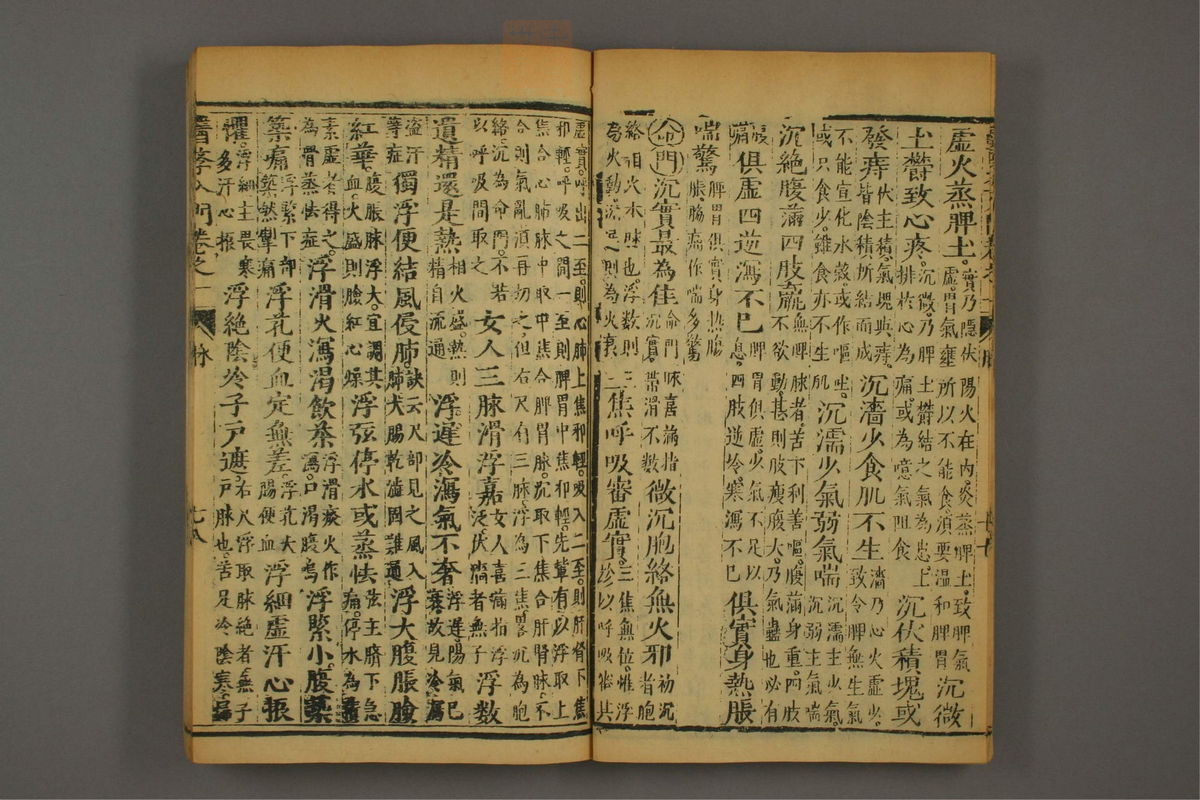 虛火蒸脾土實乃隱伏陽火在內炎蒸脾土致脾氣虛胃氣壅所以不能食須要溫和脾胃沉微
土欎致心疼沉微乃脾土欎結之氣為患上排於心為痛或為噫氣阻食沉伏積塊或
發痔伏主積氣塊與痔皆陰積所結而成沉濇少食肌不生濇乃心火虛少致令脾無生氣
不能宣化水穀或作嘔吐或只食少雖食亦不生肌沉濡少氣弱氣喘沉濡主少氣沉弱主氣喘
沉絕腹滿四肢羸無脾脉者苦下利善嘔腹滿身重四肢不欲動甚則肢瘦腹大乃氣蠱也必有
脹痛俱虛四逆瀉不已脾胃俱虛少氣不足以息四肢逆冷寒瀉不已俱實身熱脹
喘驚脾胃俱實身熱腹脹脇痛作喘多驚
命門沉實最為佳命門脉喜滿指沉實帶滑不數微沉胞絡無火邪初沉者胞
絡相火木脉也浮數則為火動沉遲則為火衰三焦呼吸審虛實三焦無位惟浮診以呼吸密其
虛實呼出二至則心肺上焦邪輕吸入二至則肝腎下焦邪輕呼吸之間一至則脾胃中焦邪輕先軰有以浮取上
焦合心肺脉中取中焦合脾胃脉沉取下焦合肝腎脉不合則氣亂須再切之但右尺有三脉浮為三焦畧沉為胞
絡沉為命門不若以呼吸間取之女人三脉滑浮嘉女人喜滿指浮泛伏濇者無子浮数
遺精還是熱相火盛熱則精自流通浮遲冷瀉氣不奢浮遲陽氣已衰故見冷瀉
盗汗等症獨浮便結風侵肺訣云尺部見之風入肺犬腸乾澁固難通浮大腹脹臉
紅華腹脹脉浮大宜調其血火盛則臉紅心燥浮弦停水或蒸怯弦主臍下急痛停水為
素虛者得之為骨蒸怯症浮滑火瀉渴飲茶浮滑痰火作瀉口渴腹鳴浮緊小腹築
築痛浮緊下部築然擊痛浮芤便血定無差浮芤大腸便血浮細虛汗心振
懼浮細主畏寒多汗心振浮絕陰冷子戶遮右尺浮取脉絶者無子戶脉也苦足冷陰寒
醫學入門卷之一 脉